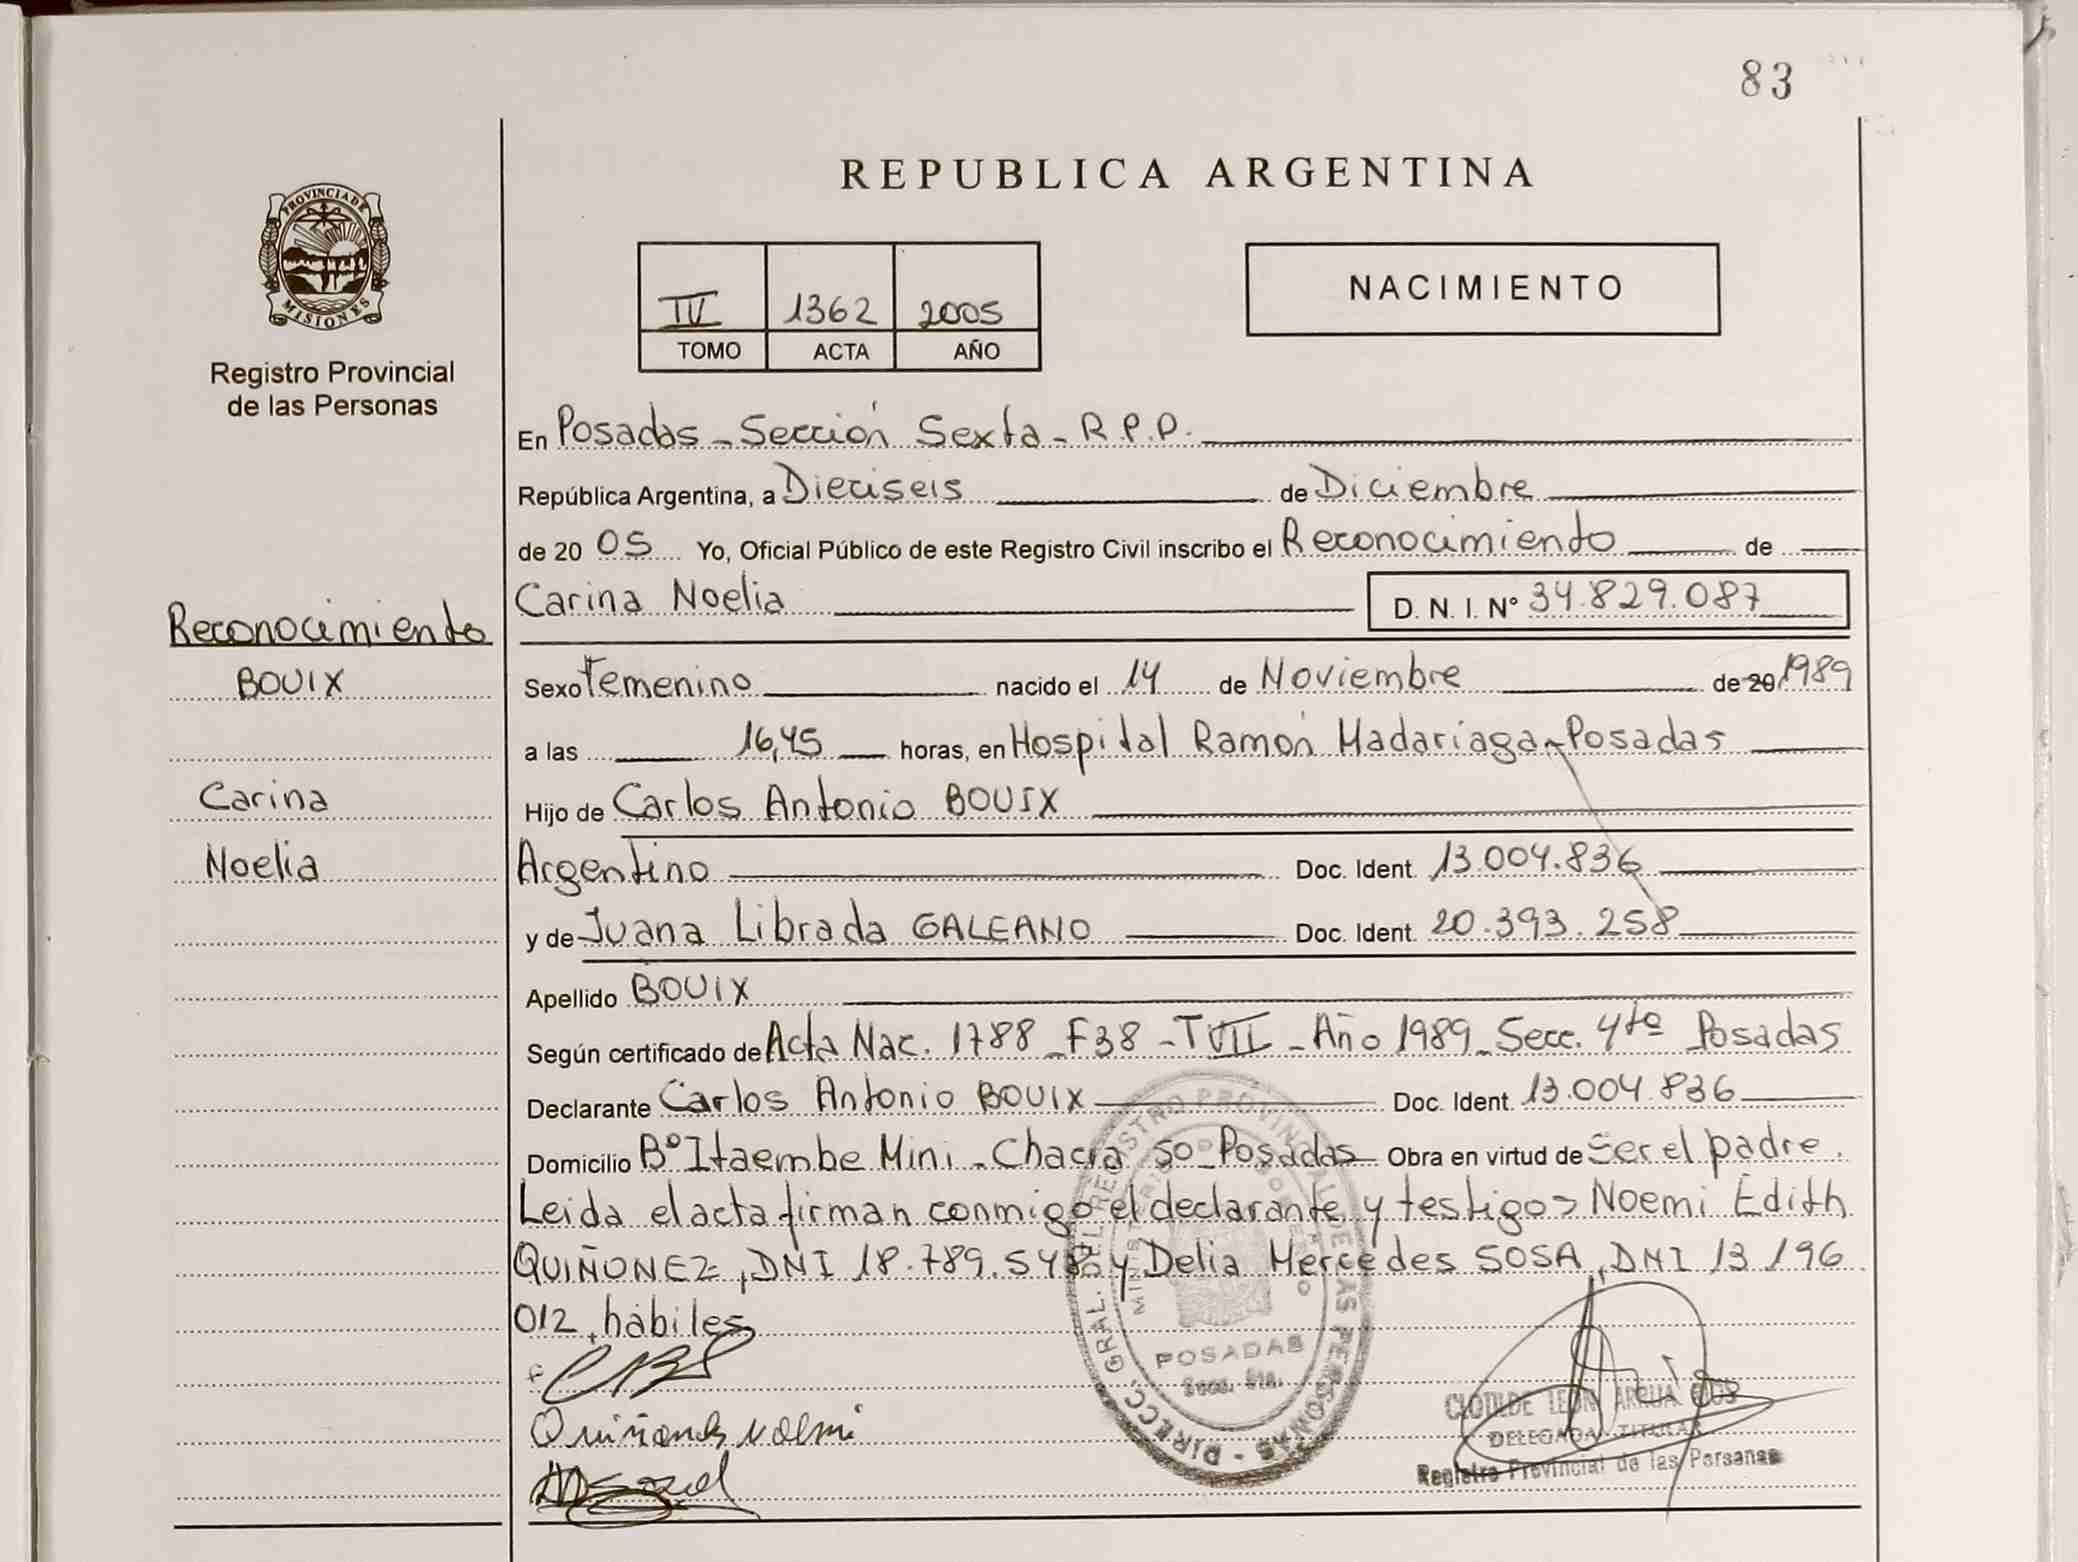 83
REPUBLICA ARGENTINA
PROVINCIA DE
MISIONES
Registro Provincial
de las Personas
IV 1362 2005
TOMO ACTA AÑO
NACIMIENTO
En Posadas - Sección Sexta - R.P.P.
República Argentina, a Dieciseis de Diciembre
de 20 05 Yo, Oficial Público de este Registro Civil inscribo el Reconocimiento de
Carina Noelia D. N. I. N° 34.829.087
Reconocimiento
BOUIX
Carina
Noelia
Sexo Femenino nacido el 14 de Noviembre de 20 1989
a las 16,45 horas, en Hospital Ramón Madariaga - Posadas
Hijo de Carlos Antonio BOUIX
Argentino Doc. Ident. 13.004.836
y de Juana Librada GALEANO Doc. Ident. 20.393.258
Apellido BOUIX
Según certificado de Acta Nac. 1788 - F38 - TVII - Año 1989 - Secc. 4ta Posadas
Declarante Carlos Antonio BOUIX Doc. Ident. 13.004.836
Domicilio B° Itaembe Mini - Chacra 50 - Posadas Obra en virtud de ser el padre.
Leida el acta firman conmigo el declarante y testigos Noemi Edith
QUIÑONEZ, DNI 18.789.548 y Delia Mercedes SOSA, DNI 13 196
012, hábiles
Quiñonez Noemi
DIRECC. GRAL. DEL REGISTRO PROVINCIAL DE LAS PERSONAS
POSADAS
Secc. 6ta.
CLOTILDE LEON ARRUA
DELEGADA TITULAR
Registro Provincial de las Personas